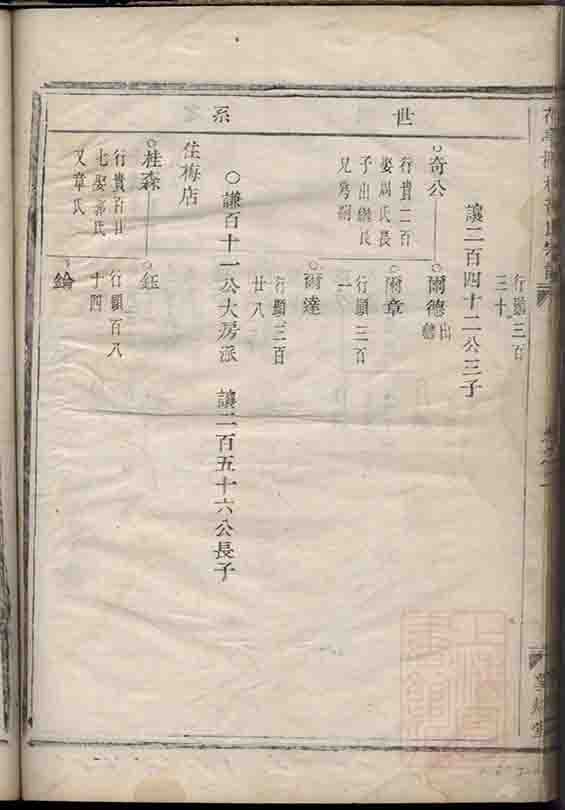 世系
行顯三百
三十
讓二百四十二公三子
奇公
行貴二百
娶周氏長
子出繼長
兄為嗣
爾德
出繼
爾章
行顯三百
一
爾達
行顯三百
廿八
謙百十一公大房派 讓二百五十六公長子
住梅店
桂森
行貴百廿
七娶郭氏
又章氏
鈺
行顯百八
十四
錀